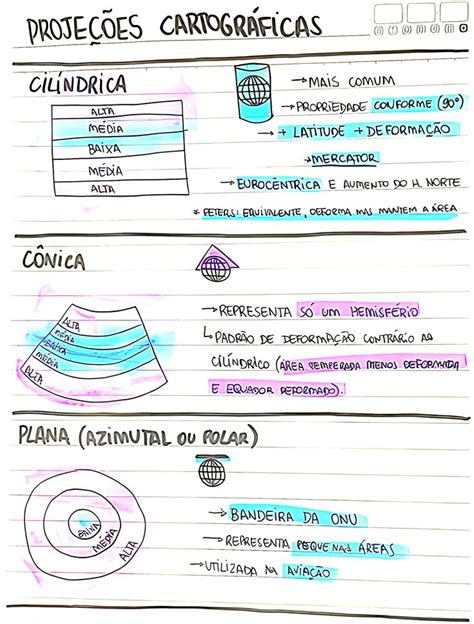 PROJEÇÕES CARTOGRÁFICAS
CILÍNDRICA
ALTA
MÉDIA
BAIXA
MÉDIA
ALTA
→MAIS COMUM
→PROPRIEDADE CONFORME (90°)
→ + LATITUDE + DEFORMAÇÃO
→MERCATOR
→EUROCÊNTRICA E AUMENTO DO H. NORTE
* PETERS: EQUIVALENTE, DEFORMA MAS MANTEM A ÁREA
CÔNICA
ALTA
MÉDIA
BAIXA
MÉDIA
ALTA
→REPRESENTA SÓ UM HEMISFÉRIO
↳PADRÃO DE DEFORMAÇÃO CONTRÁRIO AO
CILÍNDRICO (ÁREA TEMPERADA MENOS DEFORMADA
E EQUADOR DEFORMADO).
PLANA (AZIMUTAL OU POLAR)
BAIXA
MÉDIA
ALTA
→BANDEIRA DA ONU
→REPRESENTA PEQUENAS ÁREAS
→UTILIZADA NA AVIAÇÃO